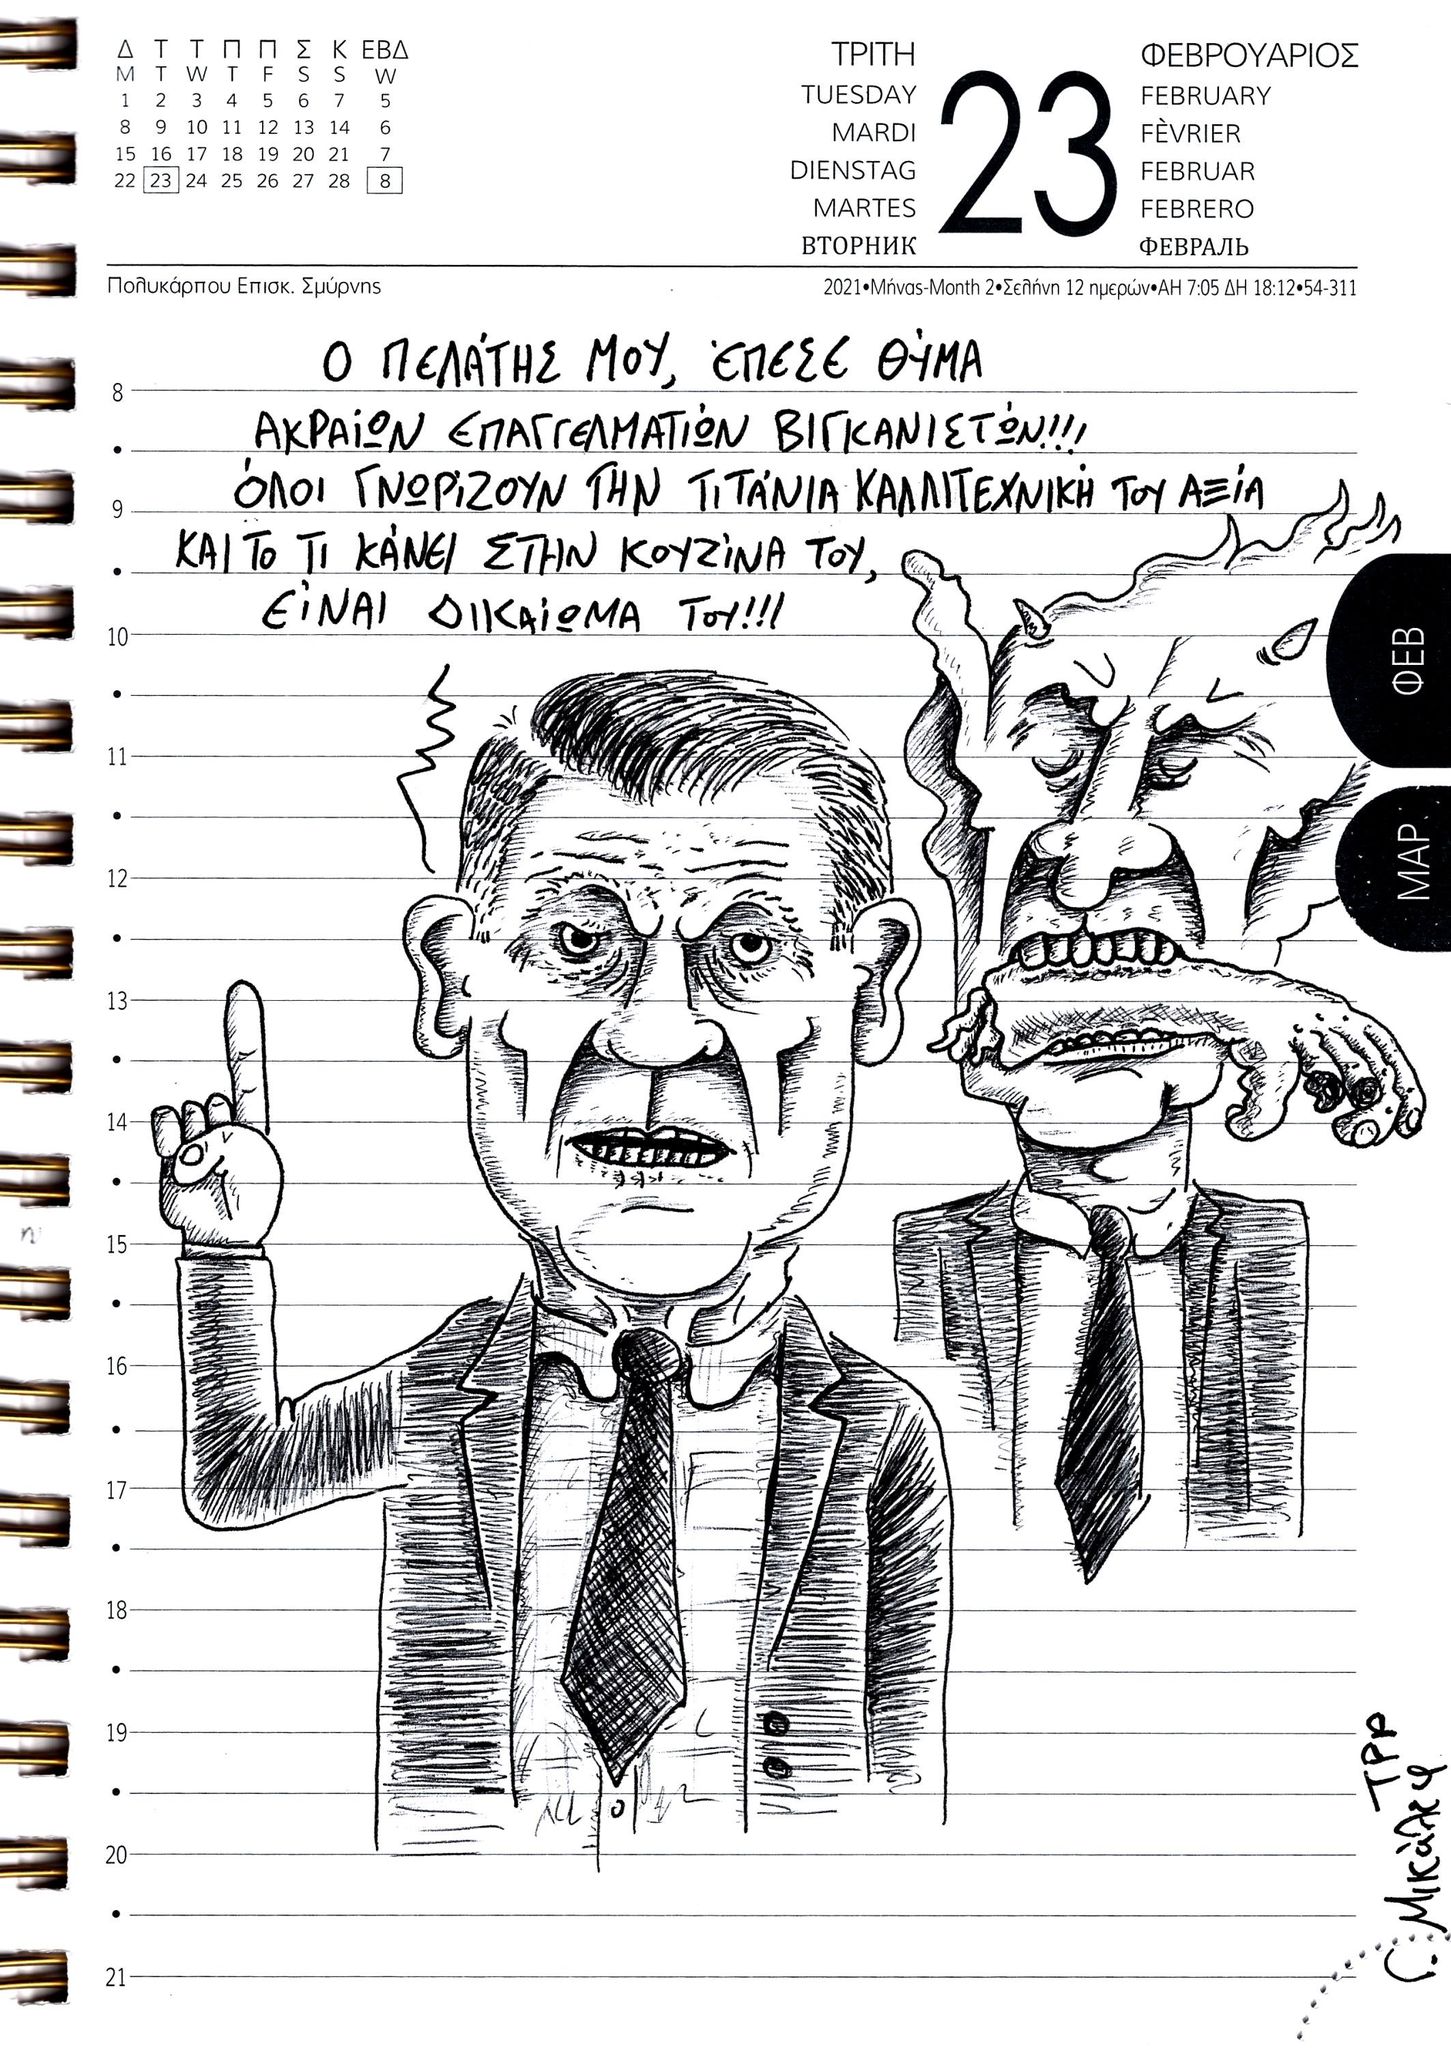 Δ Τ Τ Π Π Σ Κ ΕΒΔ
M T W T F S S W
1 2 3 4 5 6 7 5
8 9 10 11 12 13 14 6
15 16 17 18 19 20 21 7
22 23 24 25 26 27 28 8
ΤΡΙΤΗ
TUESDAY
MARDI
DIENSTAG
MARTES
ВТОРНИК
23
ΦΕΒΡΟΥΑΡΙΟΣ
FEBRUARY
FÈVRIER
FEBRUAR
FEBRERO
ФЕВРАЛЬ
Πολυκάρπου Επισκ. Σμύρνης
2021•Μήνας-Month 2•Σελήνη 12 ημερών•ΑΗ 7:05 ΔΗ 18:12•54-311
Ο ΠΕΛΆΤΗΣ ΜΟΥ, ΈΠΕΣΕ ΘΎΜΑ
ΑΚΡΑΊΩΝ ΕΠΑΓΓΕΛΜΑΤΙΏΝ ΒΙΓΚΑΝΙΣΤΏΝ!!!
ΌΛΟΙ ΓΝΩΡΊΖΟΥΝ ΤΗΝ ΤΙΤΆΝΙΑ ΚΑΛΛΙΤΕΧΝΙΚΉ ΤΟΥ ΑΞΊΑ
ΚΑΙ ΤΟ ΤΙ ΚΆΝΕΙ ΣΤΗΝ ΚΟΥΖΊΝΑ ΤΟΥ,
ΕΊΝΑΙ ΔΙΚΑΊΩΜΑ ΤΟΥ!!!
8
9
10
11
12
13
14
15
16
17
18
19
20
21
ΦΕΒ
ΜΑΡ
TPP